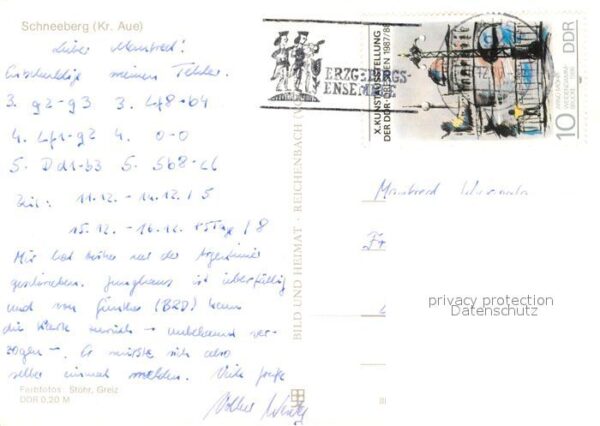 Schneeberg (Kr. Aue)
Lieber Manfred!
Entschuldige meinen Fehler.
3. g2-g3 3. Lf8-b4
4. Lf1-g2 4. 0-0
5. Dd1-b3 5. Sb8-c6
Zeit: 11.12. - 14.12. / 5
15.12. - 16.12. / 8
Mir hat bisher nur der Argentinier
geschrieben. Junghans ist überfällig
und von Günther (BRD) kam
die Karte zurück - unbekannt ver-
zogen -. Er müßte sich also
selbst einmal melden. Viele Grüße
Volker
Farbfotos: Stöhr, Greiz
DDR 0,20 M
BILD UND HEIMAT · REICHENBACH (V
ERZGEBIRGS-
ENSEMBLE
X. KUNSTAUSSTELLUNG
DER DDR · DRESDEN 1987/88
10 DDR
Manfred
privacy protection
Datenschutz